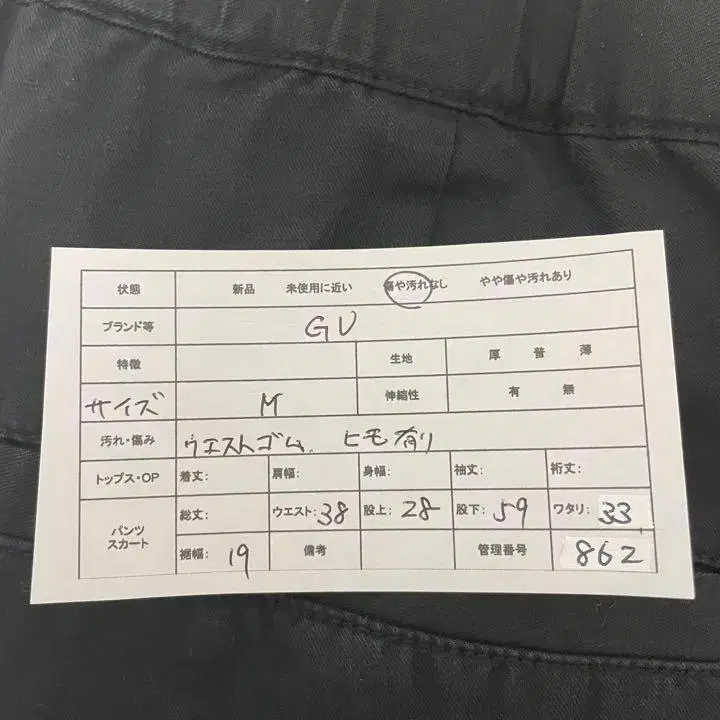 状態 新品 未使用に近い 傷や汚れなし やや傷や汚れあり
ブランド等 GU
特徴 生地 厚 普 薄
サイズ M 伸縮性 有 無
汚れ・傷み ウエストゴム、ヒモ有り
トップス・OP 着丈: 肩幅: 身幅: 袖丈: 裄丈:
パンツ スカート 総丈: ウエスト: 38 股上: 28 股下: 59 ワタリ: 33
裾幅: 19 備考 管理番号 862